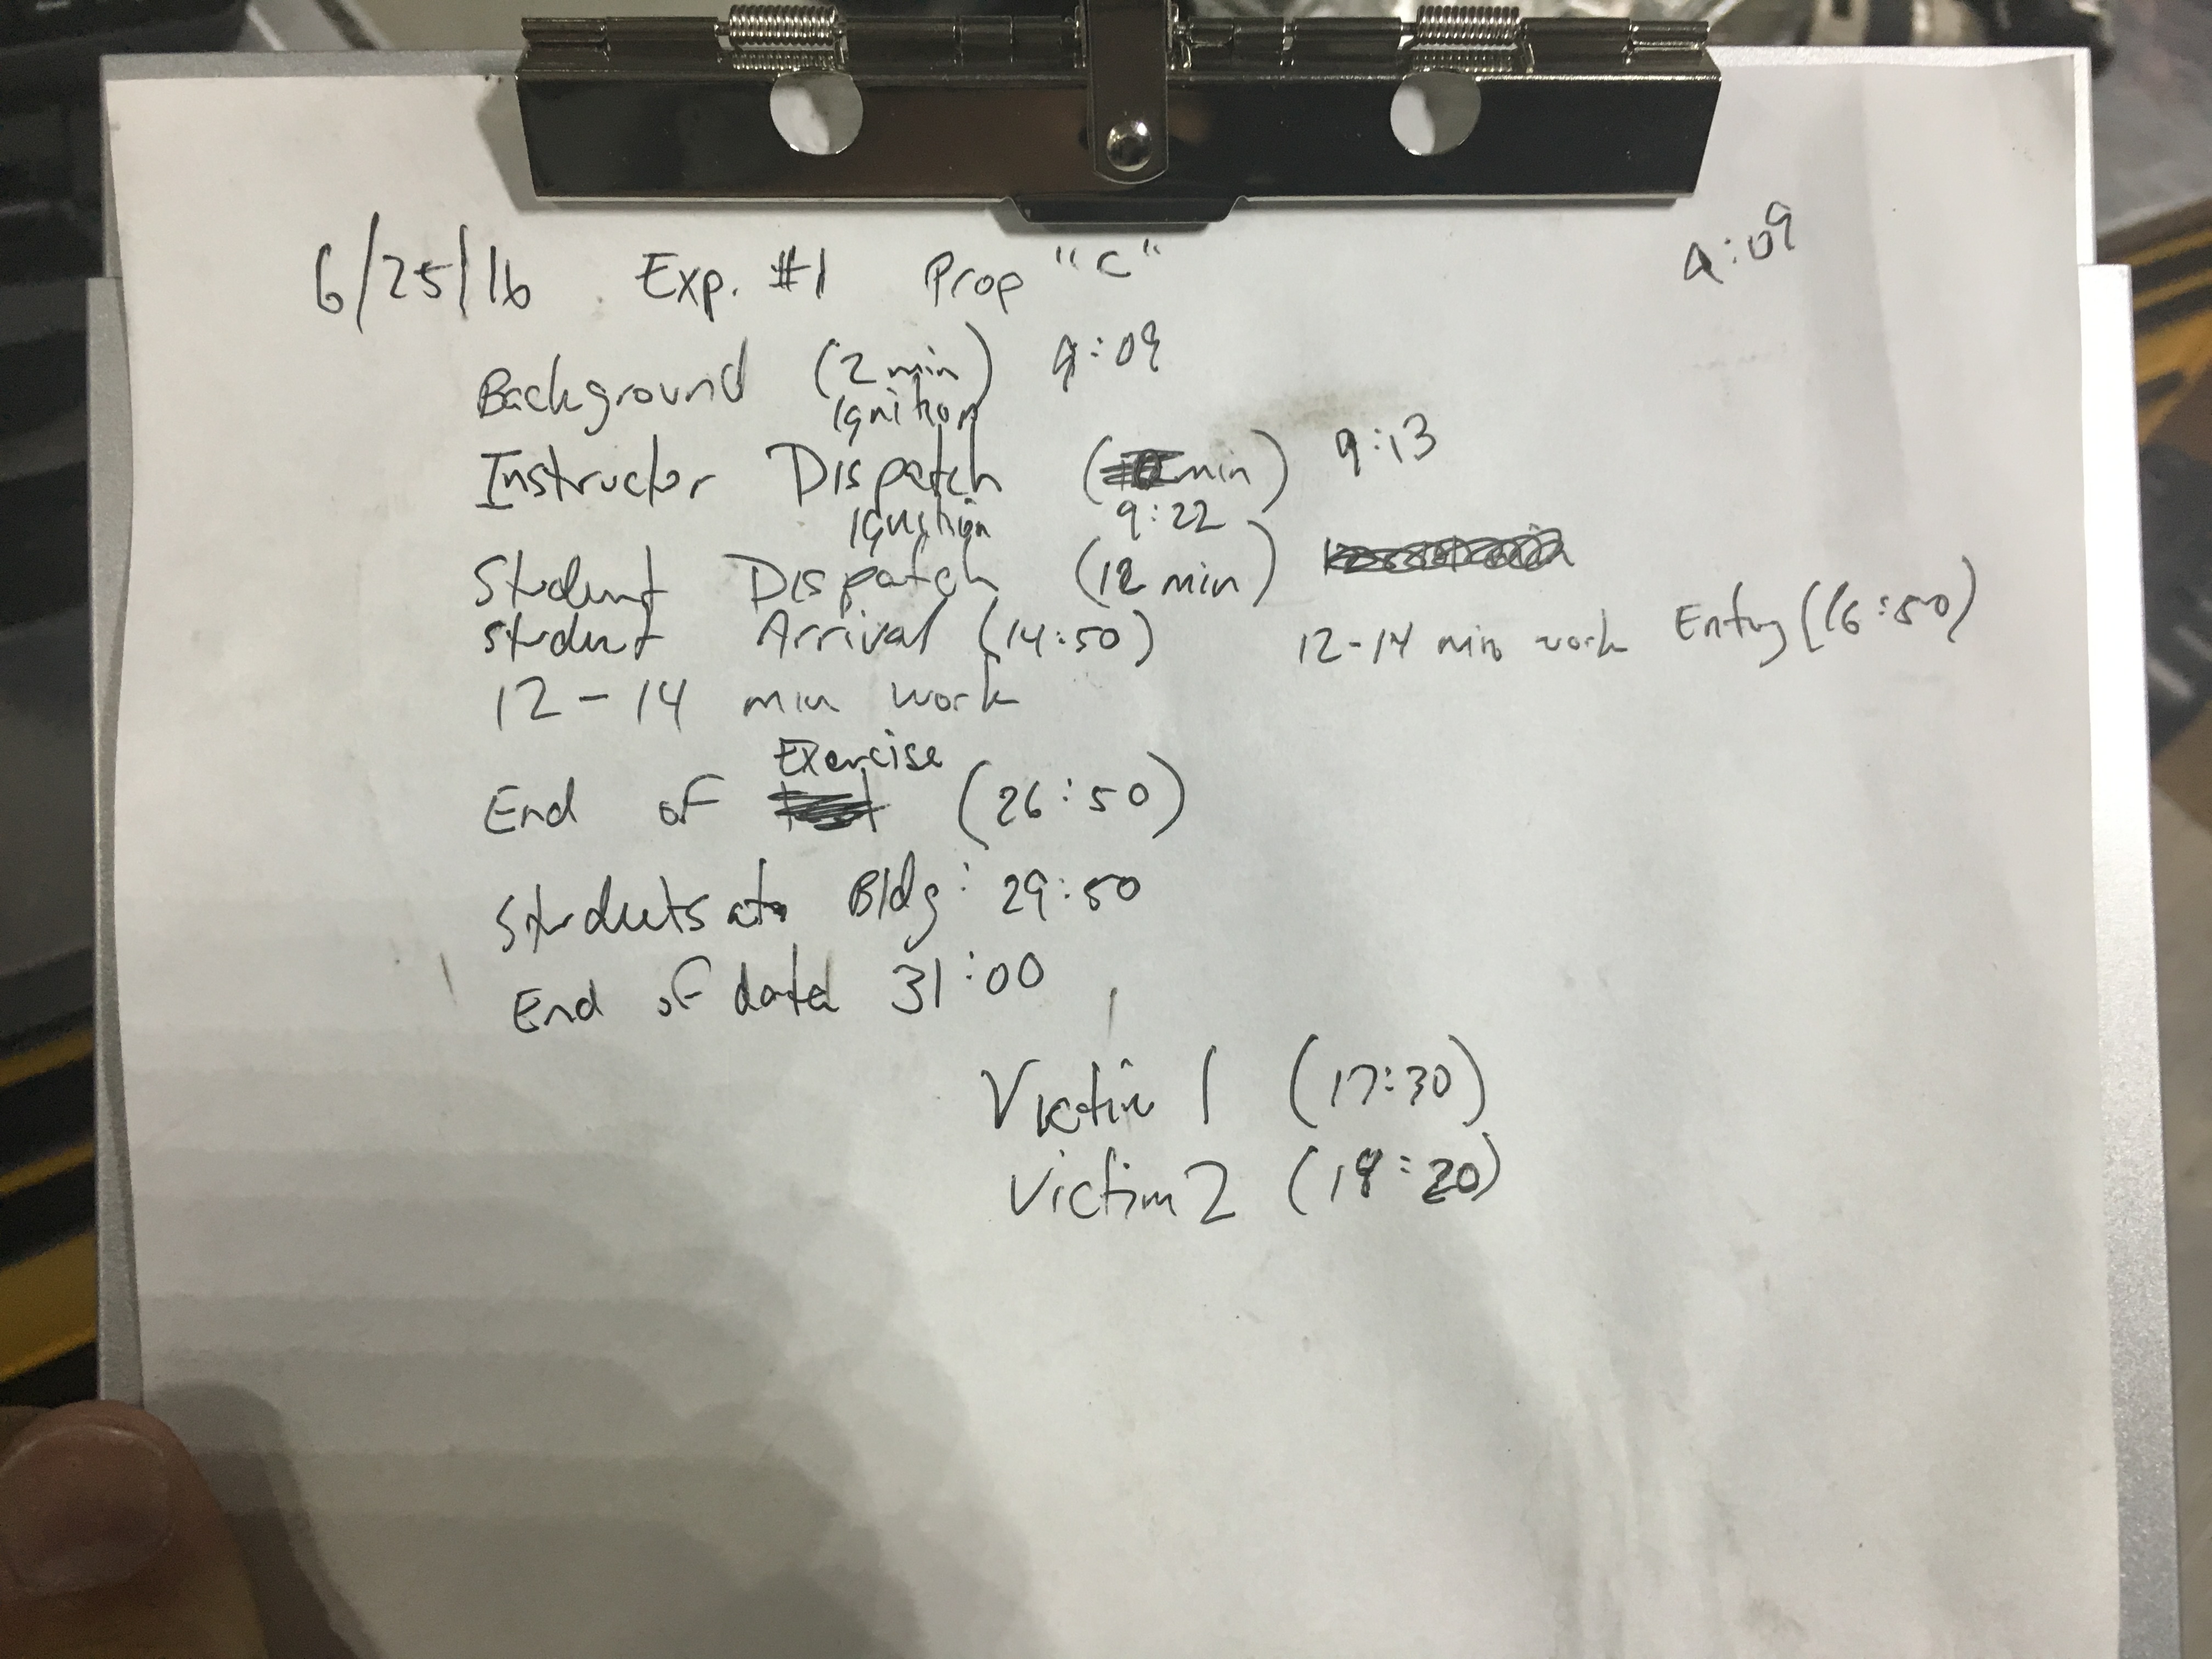 6/25/16 Exp. #1 Prop "C" 9:09
Background (2 min) 9:09
Ignition
Instructor Dispatch (min) 9:13
Ignition 9:22
Student Dispatch (12 min)
Student Arrival (14:50) 12-14 min work Entry (16:50)
12-14 min work
Exercise
End of (26:50)
Students at Bldg: 29:50
End of data 31:00
Victim 1 (17:30)
Victim 2 (:20)